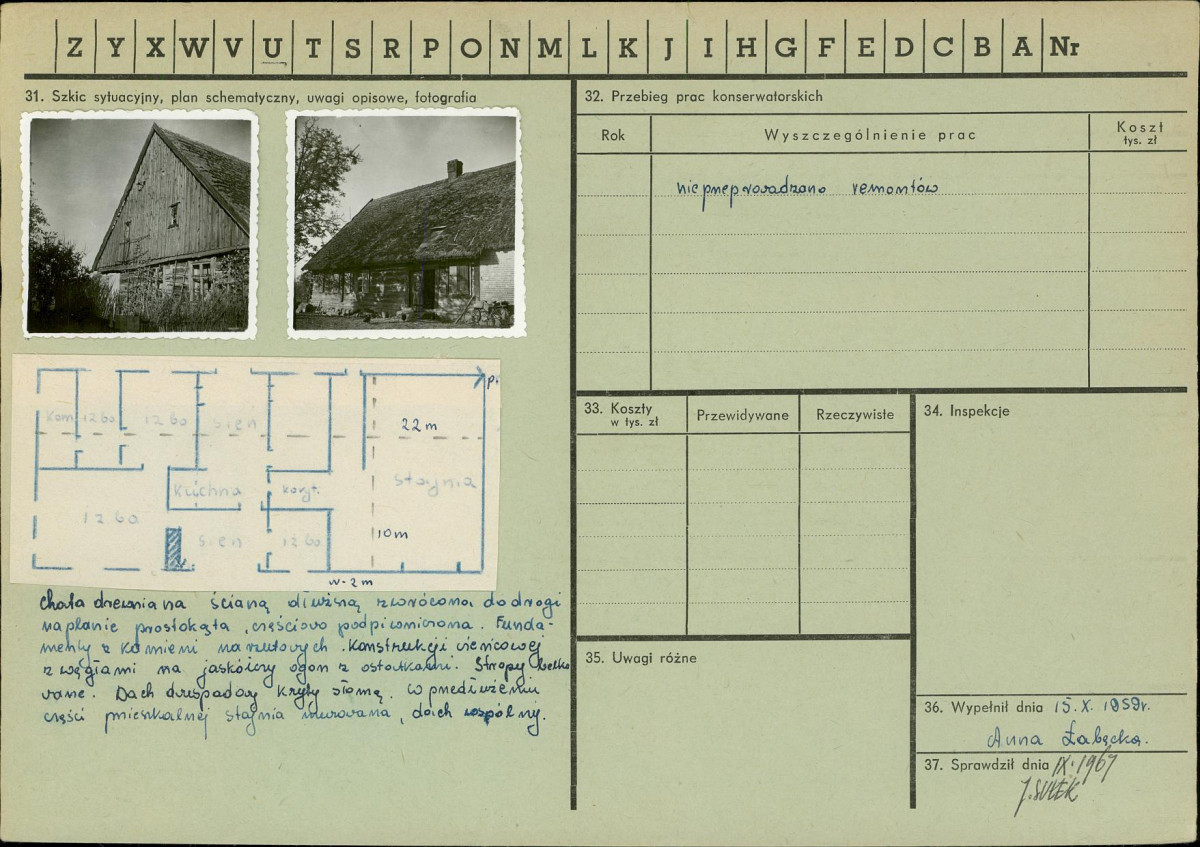 Z Y X W V U T S R P O N M L K J I H G F E D C B A Nr
31. Szkic sytuacyjny, plan schematyczny, uwagi opisowe, fotografia
p.
kom. izba izba sień
22 m
kuchnia koryt. stajnia
izba
10 m
sień izba
w - 2 m
chata drewniana ścianą dłużną zwrócona do drogi
na planie prostokąta, częściowo podpiwniczona. Funda-
menty z kamieni narzutowych. Konstrukcji wieńcowej
z węgłami na jaskółczy ogon z ostatkami. Stropy belko
wane. Dach dwuspadowy kryty słomą. W przedłużeniu
części mieszkalnej stajnia murowana, dach wspólny.
32. Przebieg prac konserwatorskich
Rok Wyszczególnienie prac Koszt
tys. zł
nie przeprowadzano remontów
33. Koszty
w tys. zł
Przewidywane Rzeczywiste
34. Inspekcje
35. Uwagi różne
36. Wypełnił dnia 15. X. 1959r.
Anna Łabęcka.
37. Sprawdził dnia IX. 1967
J. SUŁEK